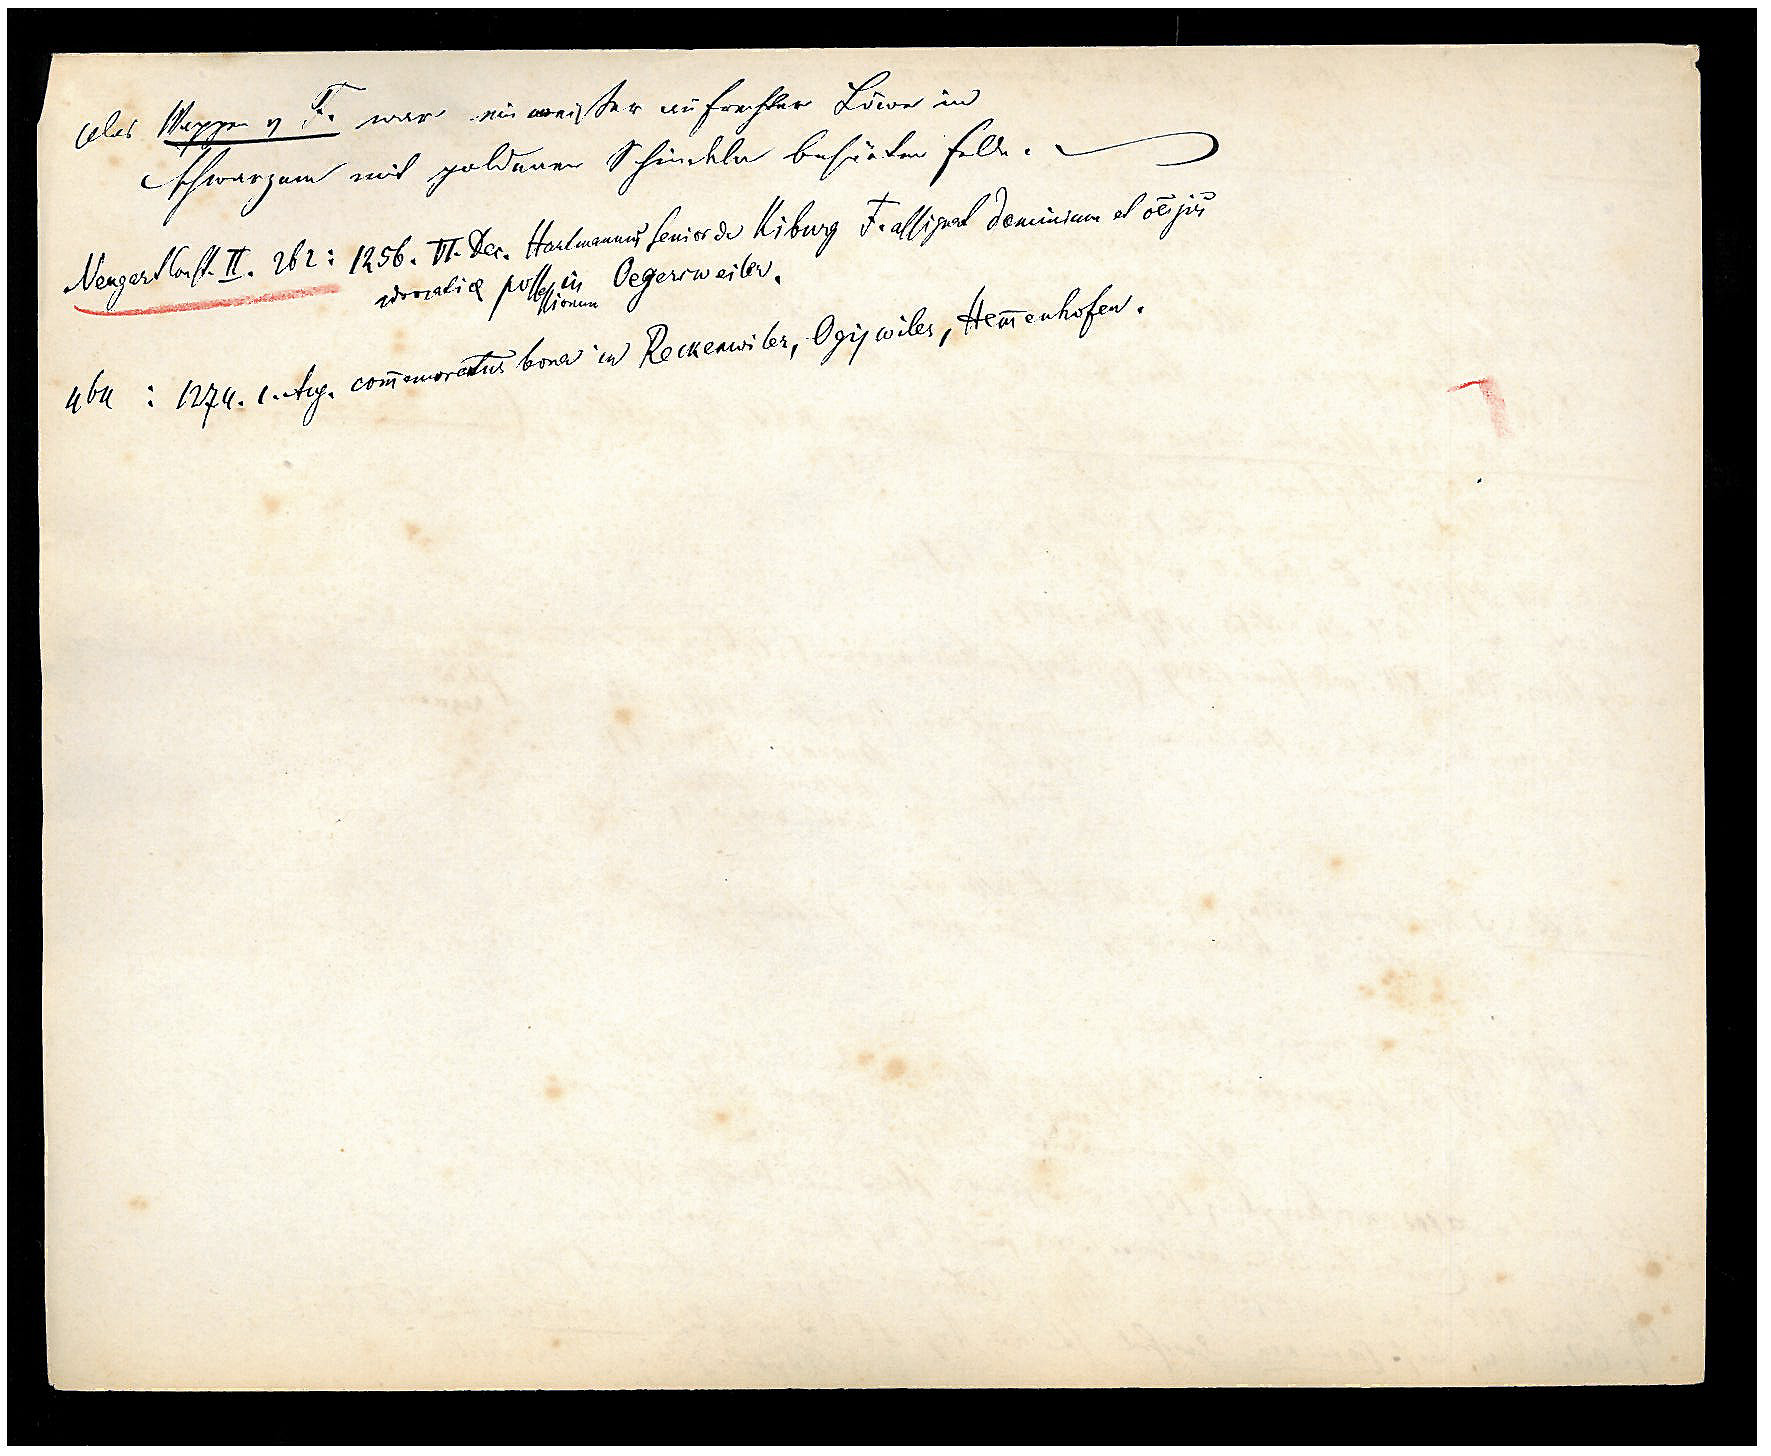 das Wappen v F. war ein weißer aufrechter Löwe in
schwarzem mit goldenen Schindeln besäeten Felde.
Neugart Const. II. 262: 1256. VI. Dec. Hartmannus senior de Kiburg F. assignat dominium et
advocatiæ possessionum in Oegersweiler.
464 : 1274. 1. Aug. com̅emoratus bona in Reckenwiler, Ogiswiler, Hem̅enhofen.